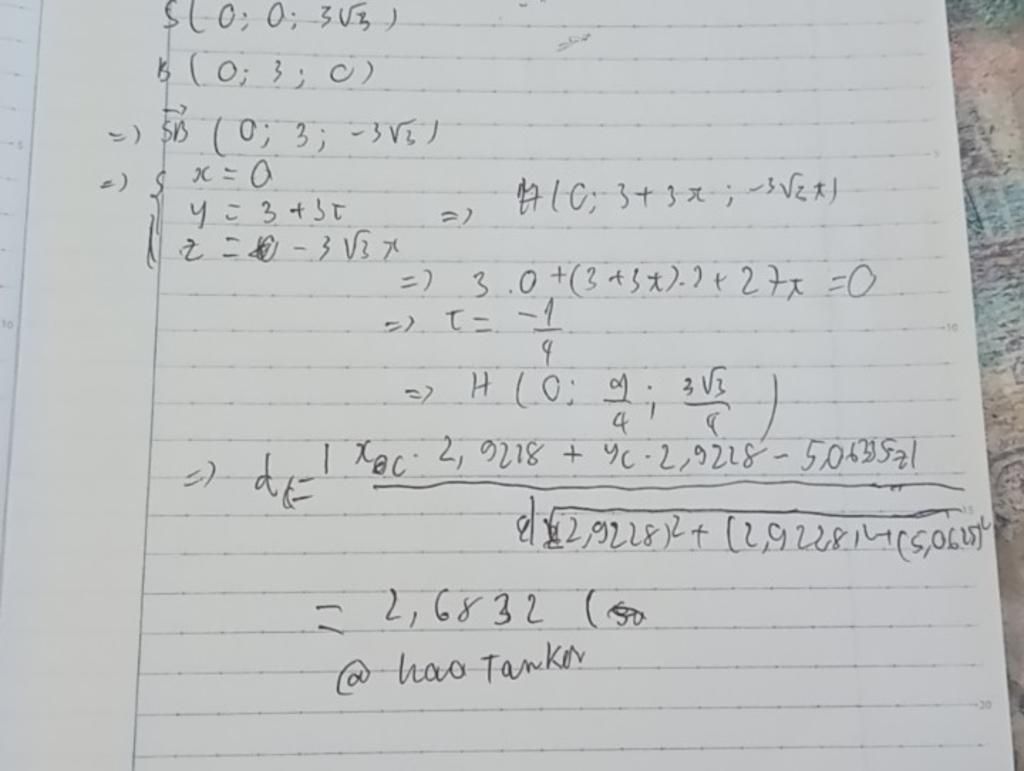 S(0; 0; 3√3)
B(0; 3; 0)
=) SB (0; 3; -3√3)
=) { x = 0
y = 3 + 3t => H(0; 3+3x; -3√2x)
z = - 3√3 x
=) 3.0 +(3+3x).3 + 27x = 0
=> t = -1/4
=> H (0; 9/4; 3√3/4)
=> d = |x C. 2,9228 + yC. 2,9228 - 5,0635z| / √(2,9228)² + (2,9228)² + (5,0625)²
= 2,6832 (
@ hao Tankor